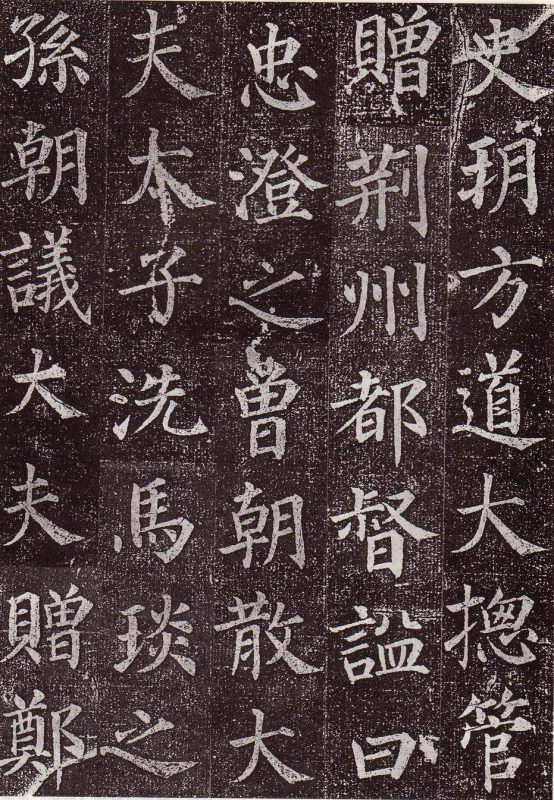 史玥方道大摠管
贈荆州都督謚曰
忠澄之曾朝散大
夫太子洗馬琰之
孫朝議大夫贈鄭